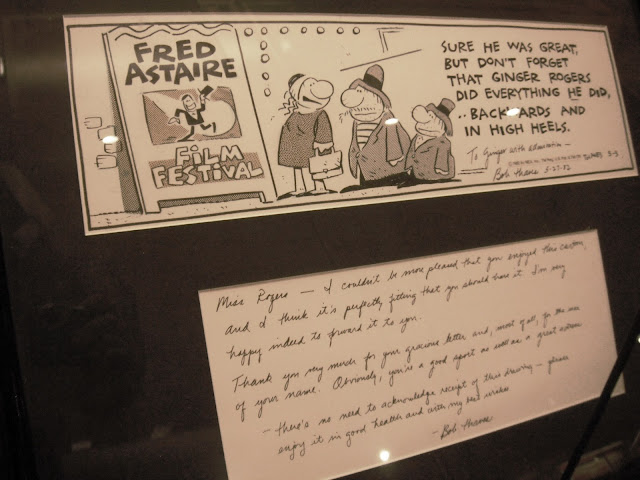 FRED
ASTAIRE
FILM
FESTIVAL
SURE HE WAS GREAT,
BUT DON'T FORGET
THAT GINGER ROGERS
DID EVERYTHING HE DID,
..BACKWARDS AND
IN HIGH HEELS.
To Ginger with admiration –
Bob Thaves 5-27-82
THAVES 5-3
Miss Rogers — I couldn't be more pleased that you enjoyed this cartoon,
and I think it's perfectly fitting that you should have it. I'm very
happy indeed to forward it to you.
Thank you very much for your gracious letter and, most of all, for the use
of your name. Obviously, you're a good sport as well as a great actress
– there's no need to acknowledge receipt of this drawing – please
enjoy it in good health and with my best wishes
– Bob Thaves